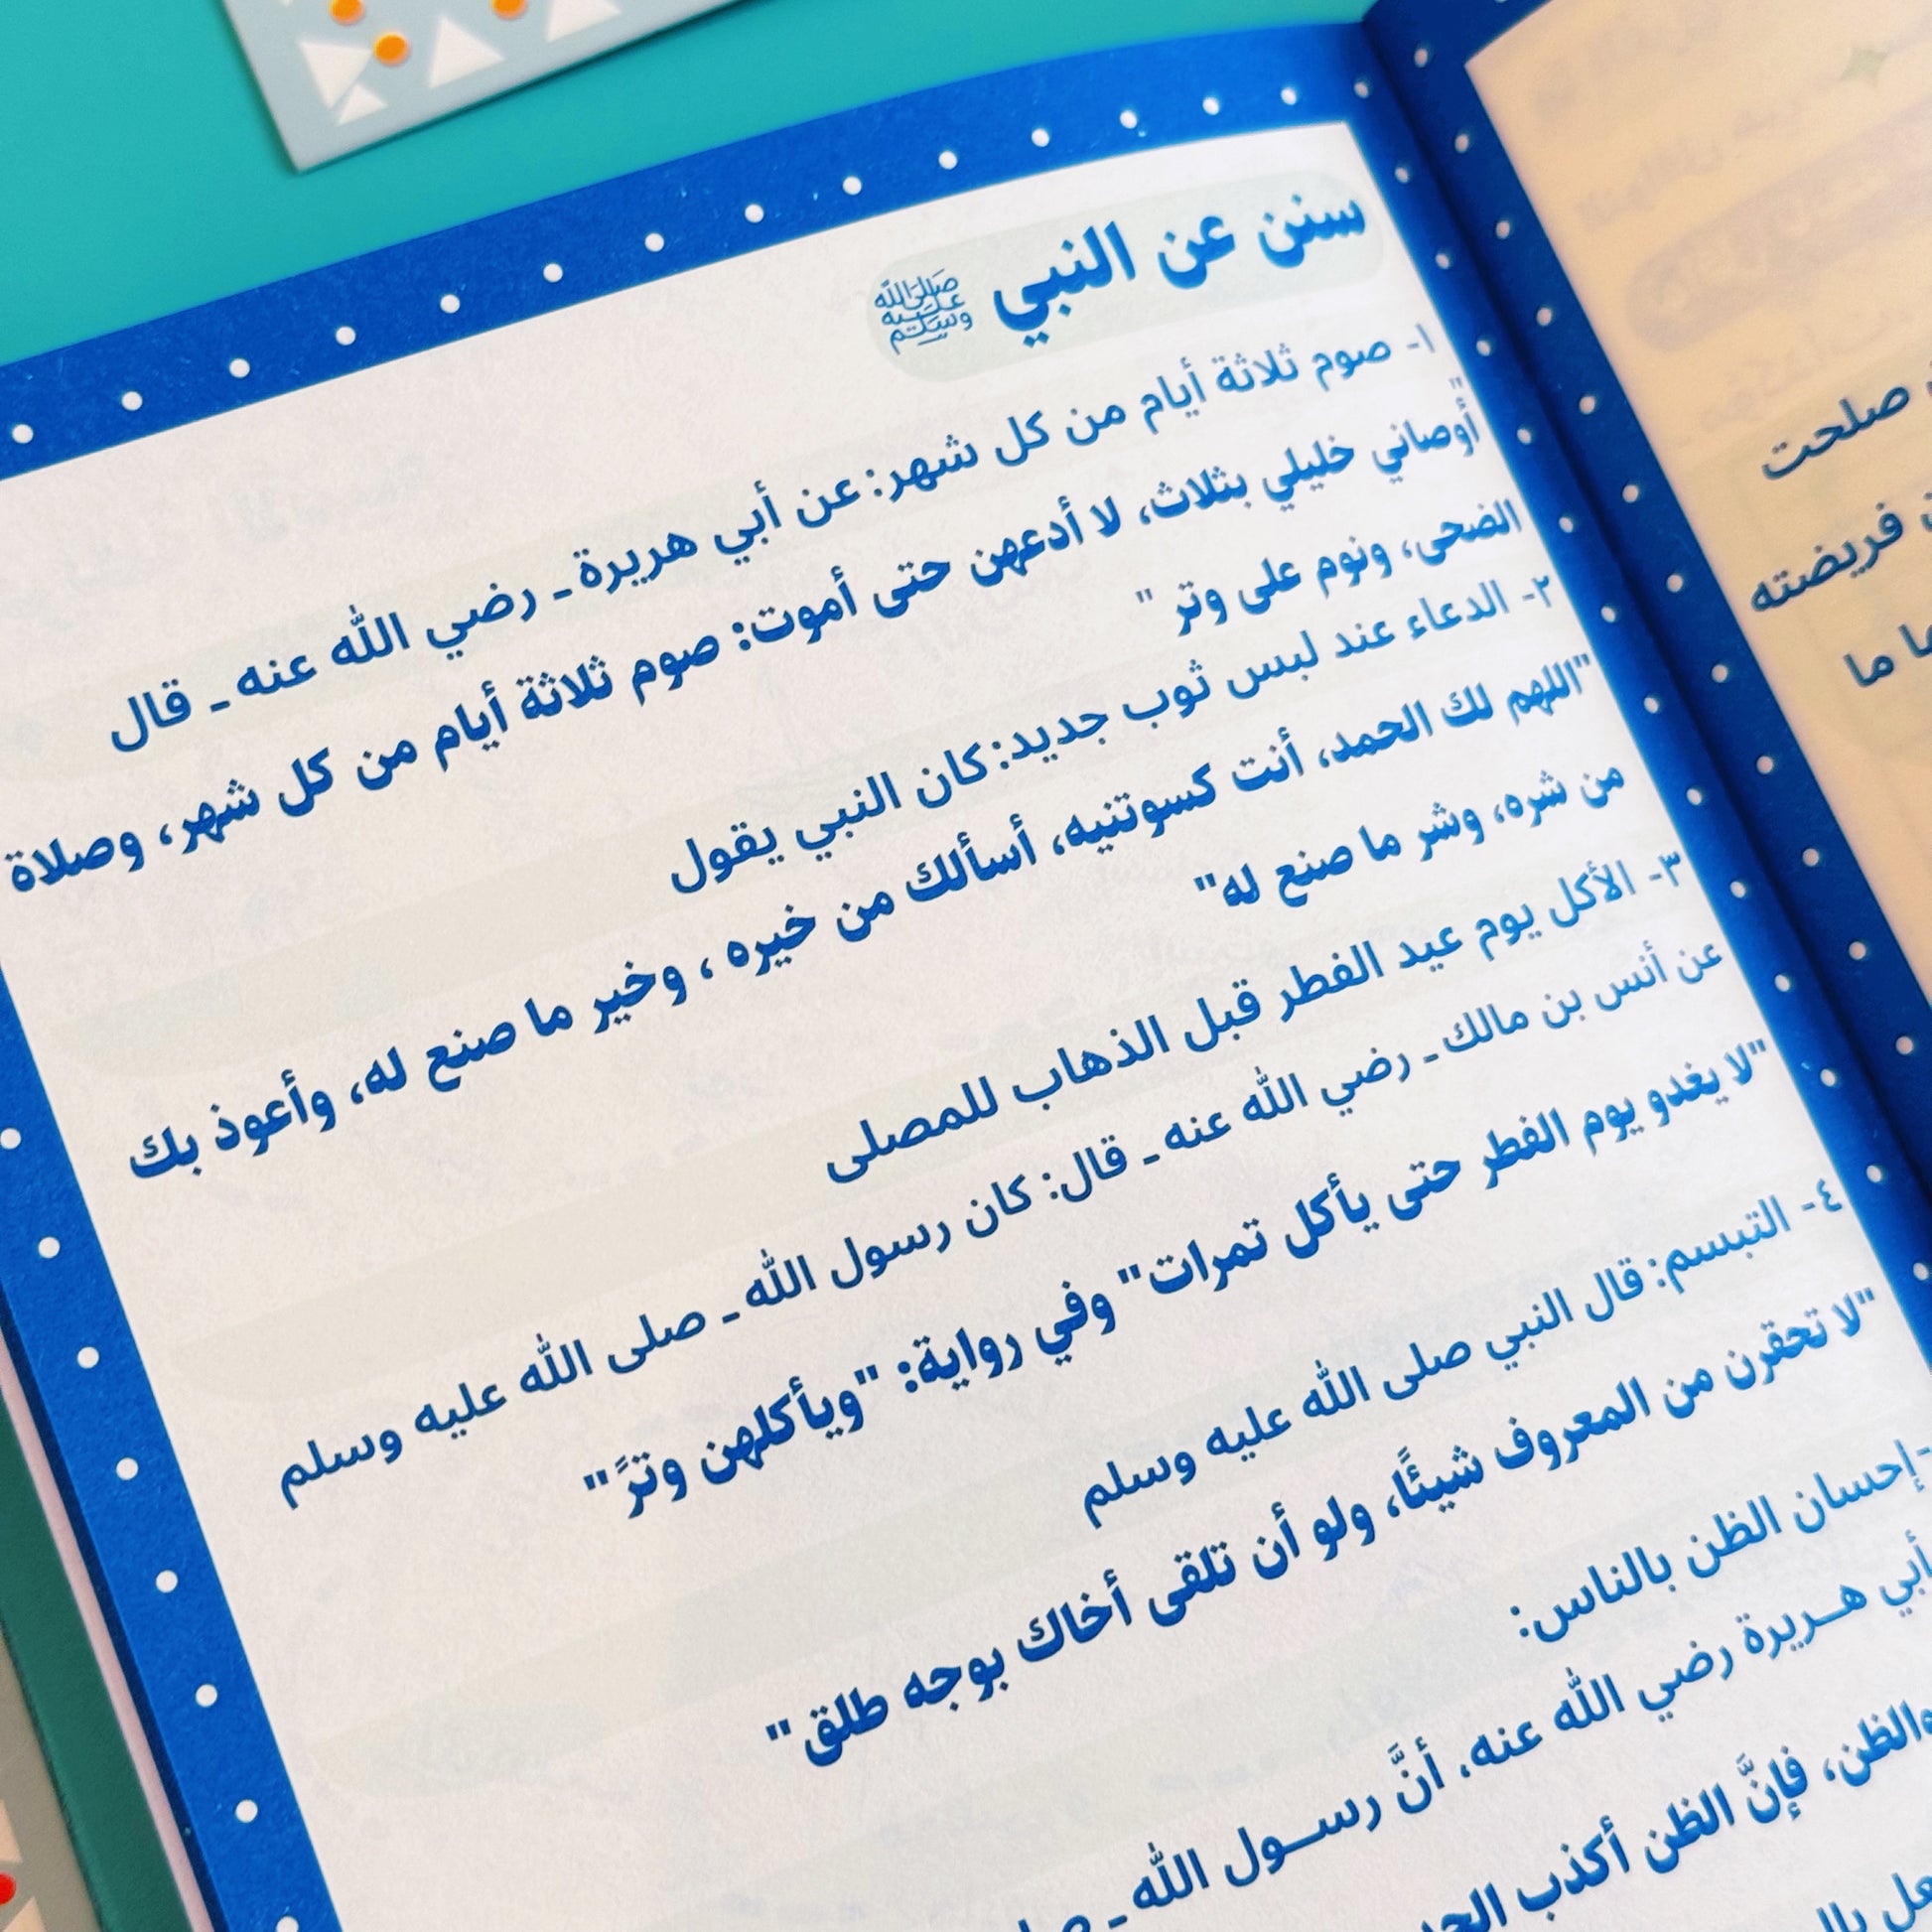 سنن عن النبي ﷺ
١- صوم ثلاثة أيام من كل شهر: عن أبي هريرة ـ رضي الله عنه ـ قال
"
أوصاني خليلي بثلاث، لا أدعهن حتى أموت: صوم ثلاثة أيام من كل شهر، وصلاة
الضحى، ونوم على وتر "
٢- الدعاء عند لبس ثوب جديد: كان النبي يقول
"اللهم لك الحمد، أنت كسوتنيه، أسألك من خيره ، وخير ما صنع له، وأعوذ بك
من شره، وشر ما صنع له"
٣- الأكل يوم عيد الفطر قبل الذهاب للمصلى
عن أنس بن مالك ـ رضي الله عنه ـ قال: كان رسول الله ـ صلى الله عليه وسلم
"لا يغدو يوم الفطر حتى يأكل تمرات" وفي رواية: "ويأكلهن وترً"
٤- التبسم: قال النبي صلى الله عليه وسلم
"لا تحقرن من المعروف شيئًا، ولو أن تلقى أخاك بوجه طلق"
-إحسان الظن بالناس:
أبي هـريرة رضي الله عنه، أنَّ رسـول الله ـ
والظن، فإنَّ الظن أكذب
صلحت
فريضته
ما